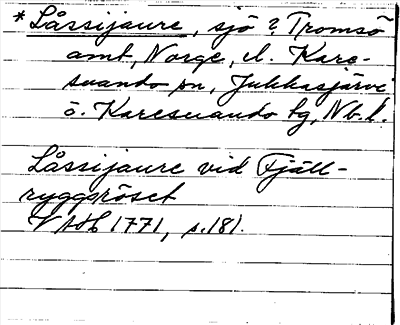 * Låssijaure, sjö? Tromsö
amt, Norge, el. Kare-
suando sn, Jukkasjärvi
o. Karesuando tg, Nb. l.
Låssijaure vid Fjäll-
ryggsröset
1771, s. 181.